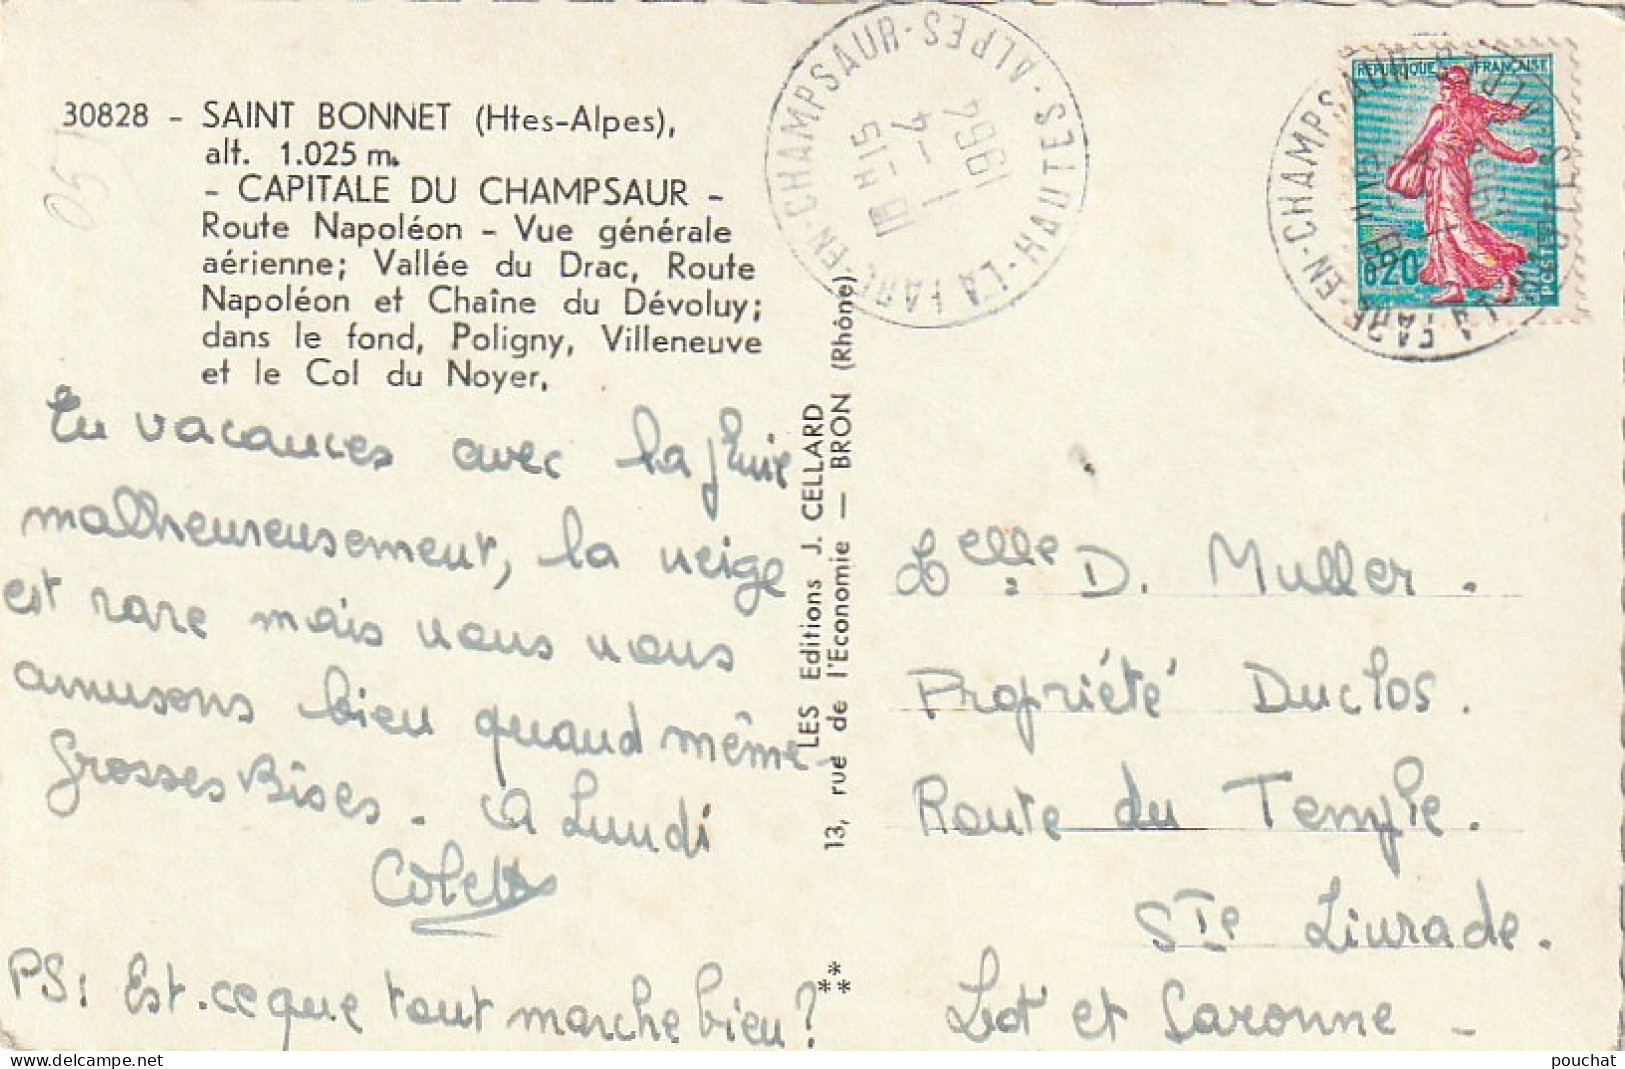 30828 - SAINT BONNET (Htes-Alpes),
alt. 1.025 m.
- CAPITALE DU CHAMPSAUR -
Route Napoléon - Vue générale
aérienne; Vallée du Drac, Route
Napoléon et Chaîne du Dévoluy;
dans le fond, Poligny, Villeneuve
et le Col du Noyer.
051
En vacances avec la pluie
malheureusement, la neige
est rare mais nous nous
amusons bien quand même
Grosses Bises. à Lundi
Colette
PS: Est-ce que tout marche bien?
LES Editions J. CELLARD
13, rue de l'Economie — BRON (Rhône)
**
**
LA FARE-EN-CHAMPSAUR - HAUTES-ALPES
18 H 15
4 - 1
1964
REPUBLIQUE FRANÇAISE
0,20
POSTES
LA FARE-EN-CHAMPSAUR
Melle D. Muller.
Propriété Duclos.
Route du Temple.
Ste Livrade.
Lot et Garonne -
www.delcampe.net
pouchat